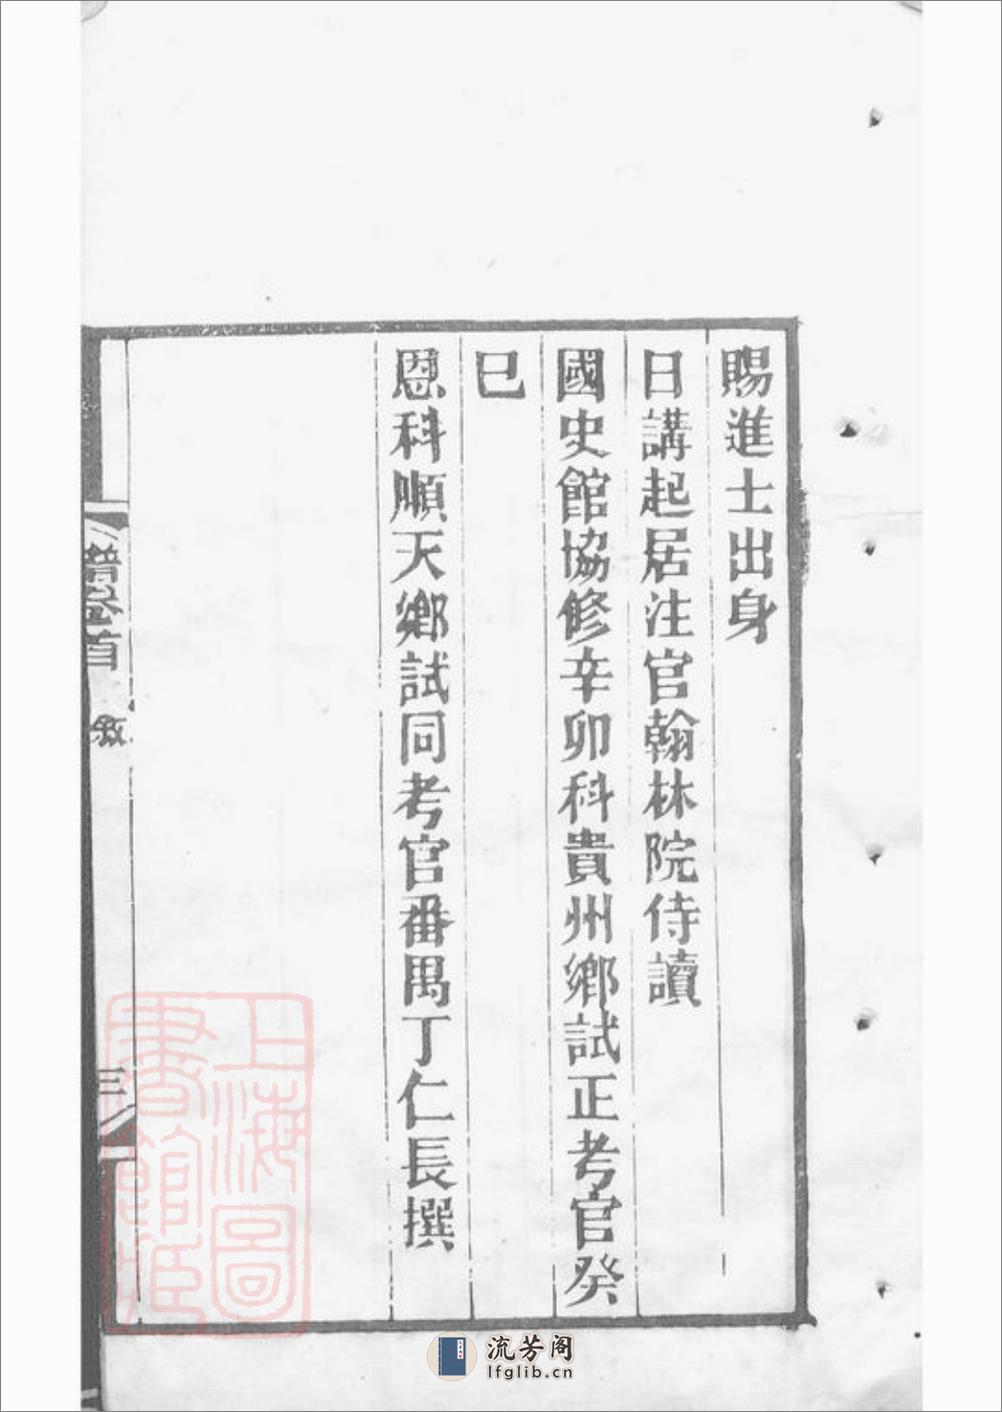 賜進士出身
日講起居注官翰林院侍讀
國史館協修辛卯科貴州鄉試正考官癸
巳
恩科順天鄉試同考官番禺丁仁長撰
譜卷首
敘
三
上海圖書館藏
流芳阁
lfglib.cn